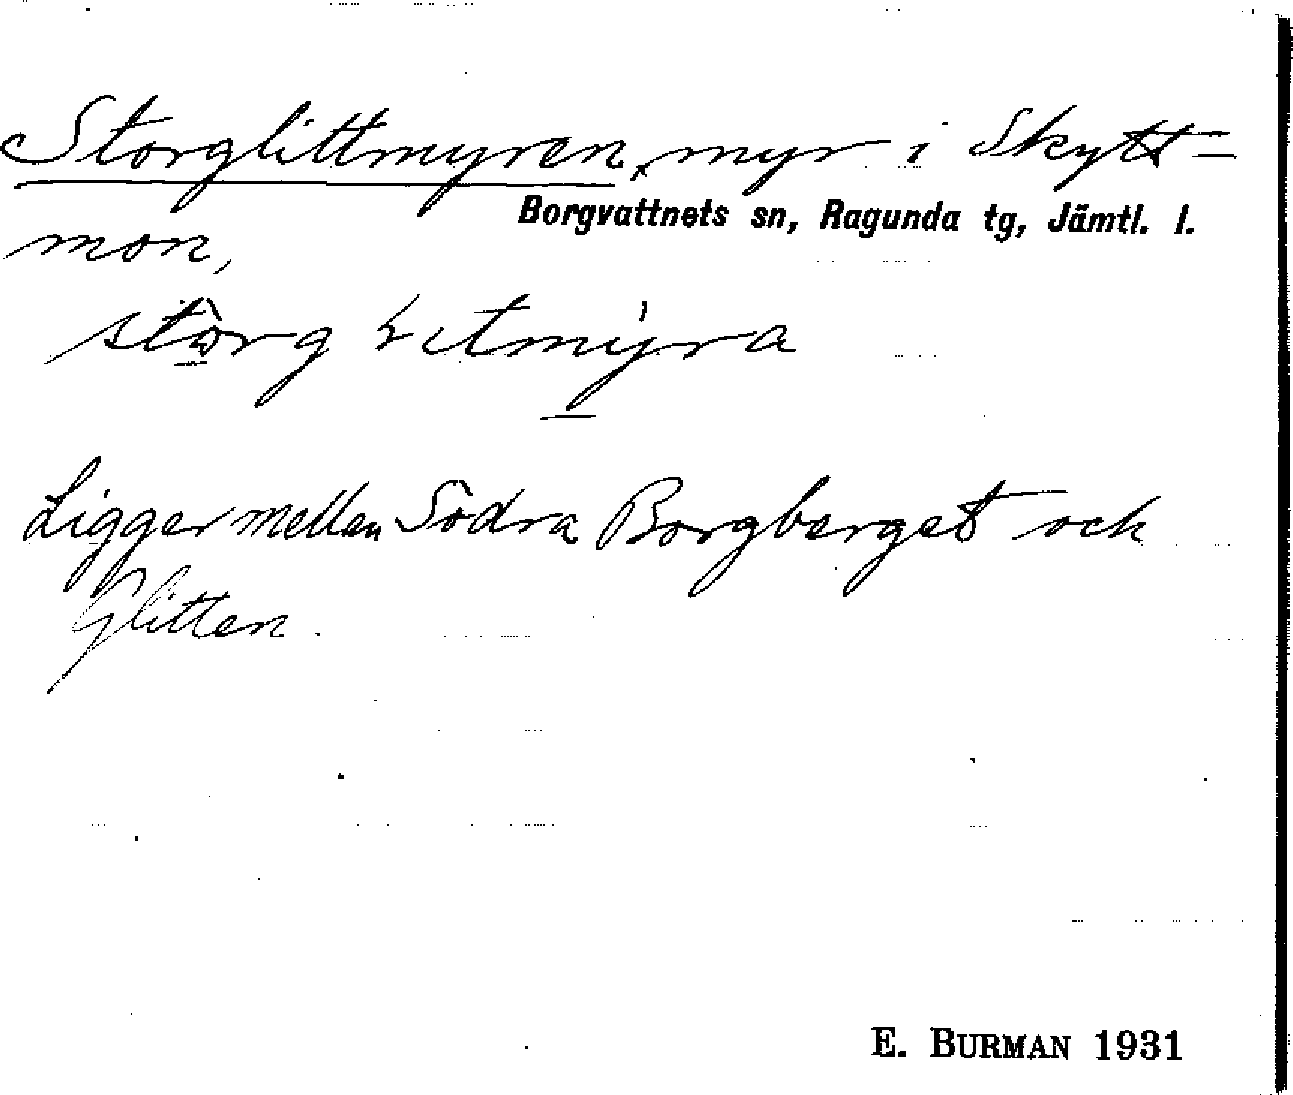 Storglittmyren, myr i Skytt=
Borgvattnets sn, Ragunda tg, Jämtl. l.
mon,
Ligger mellan Södra Borgberget och
Glitten.
E. BURMAN 1931